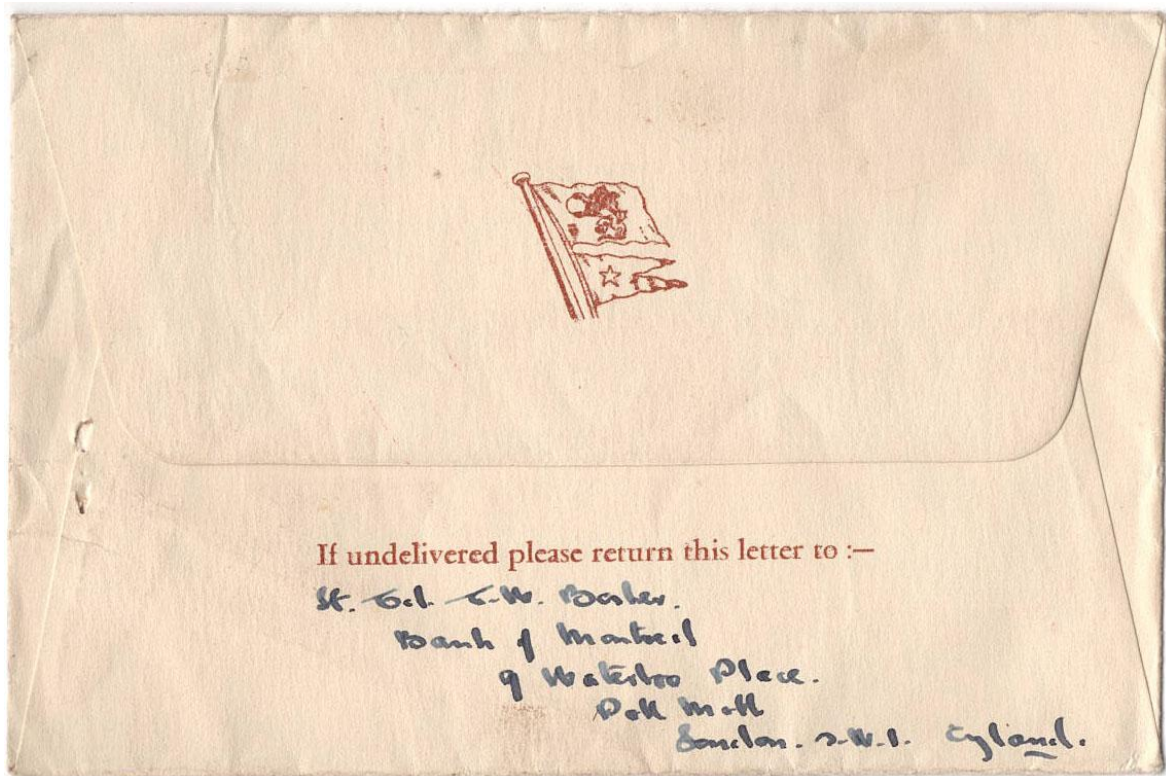 If undelivered please return this letter to :—
Lt. Col. C.W. Basher.
Bank of Montreal
9 Waterloo Place.
Pall Mall
London. S.W.1. England.